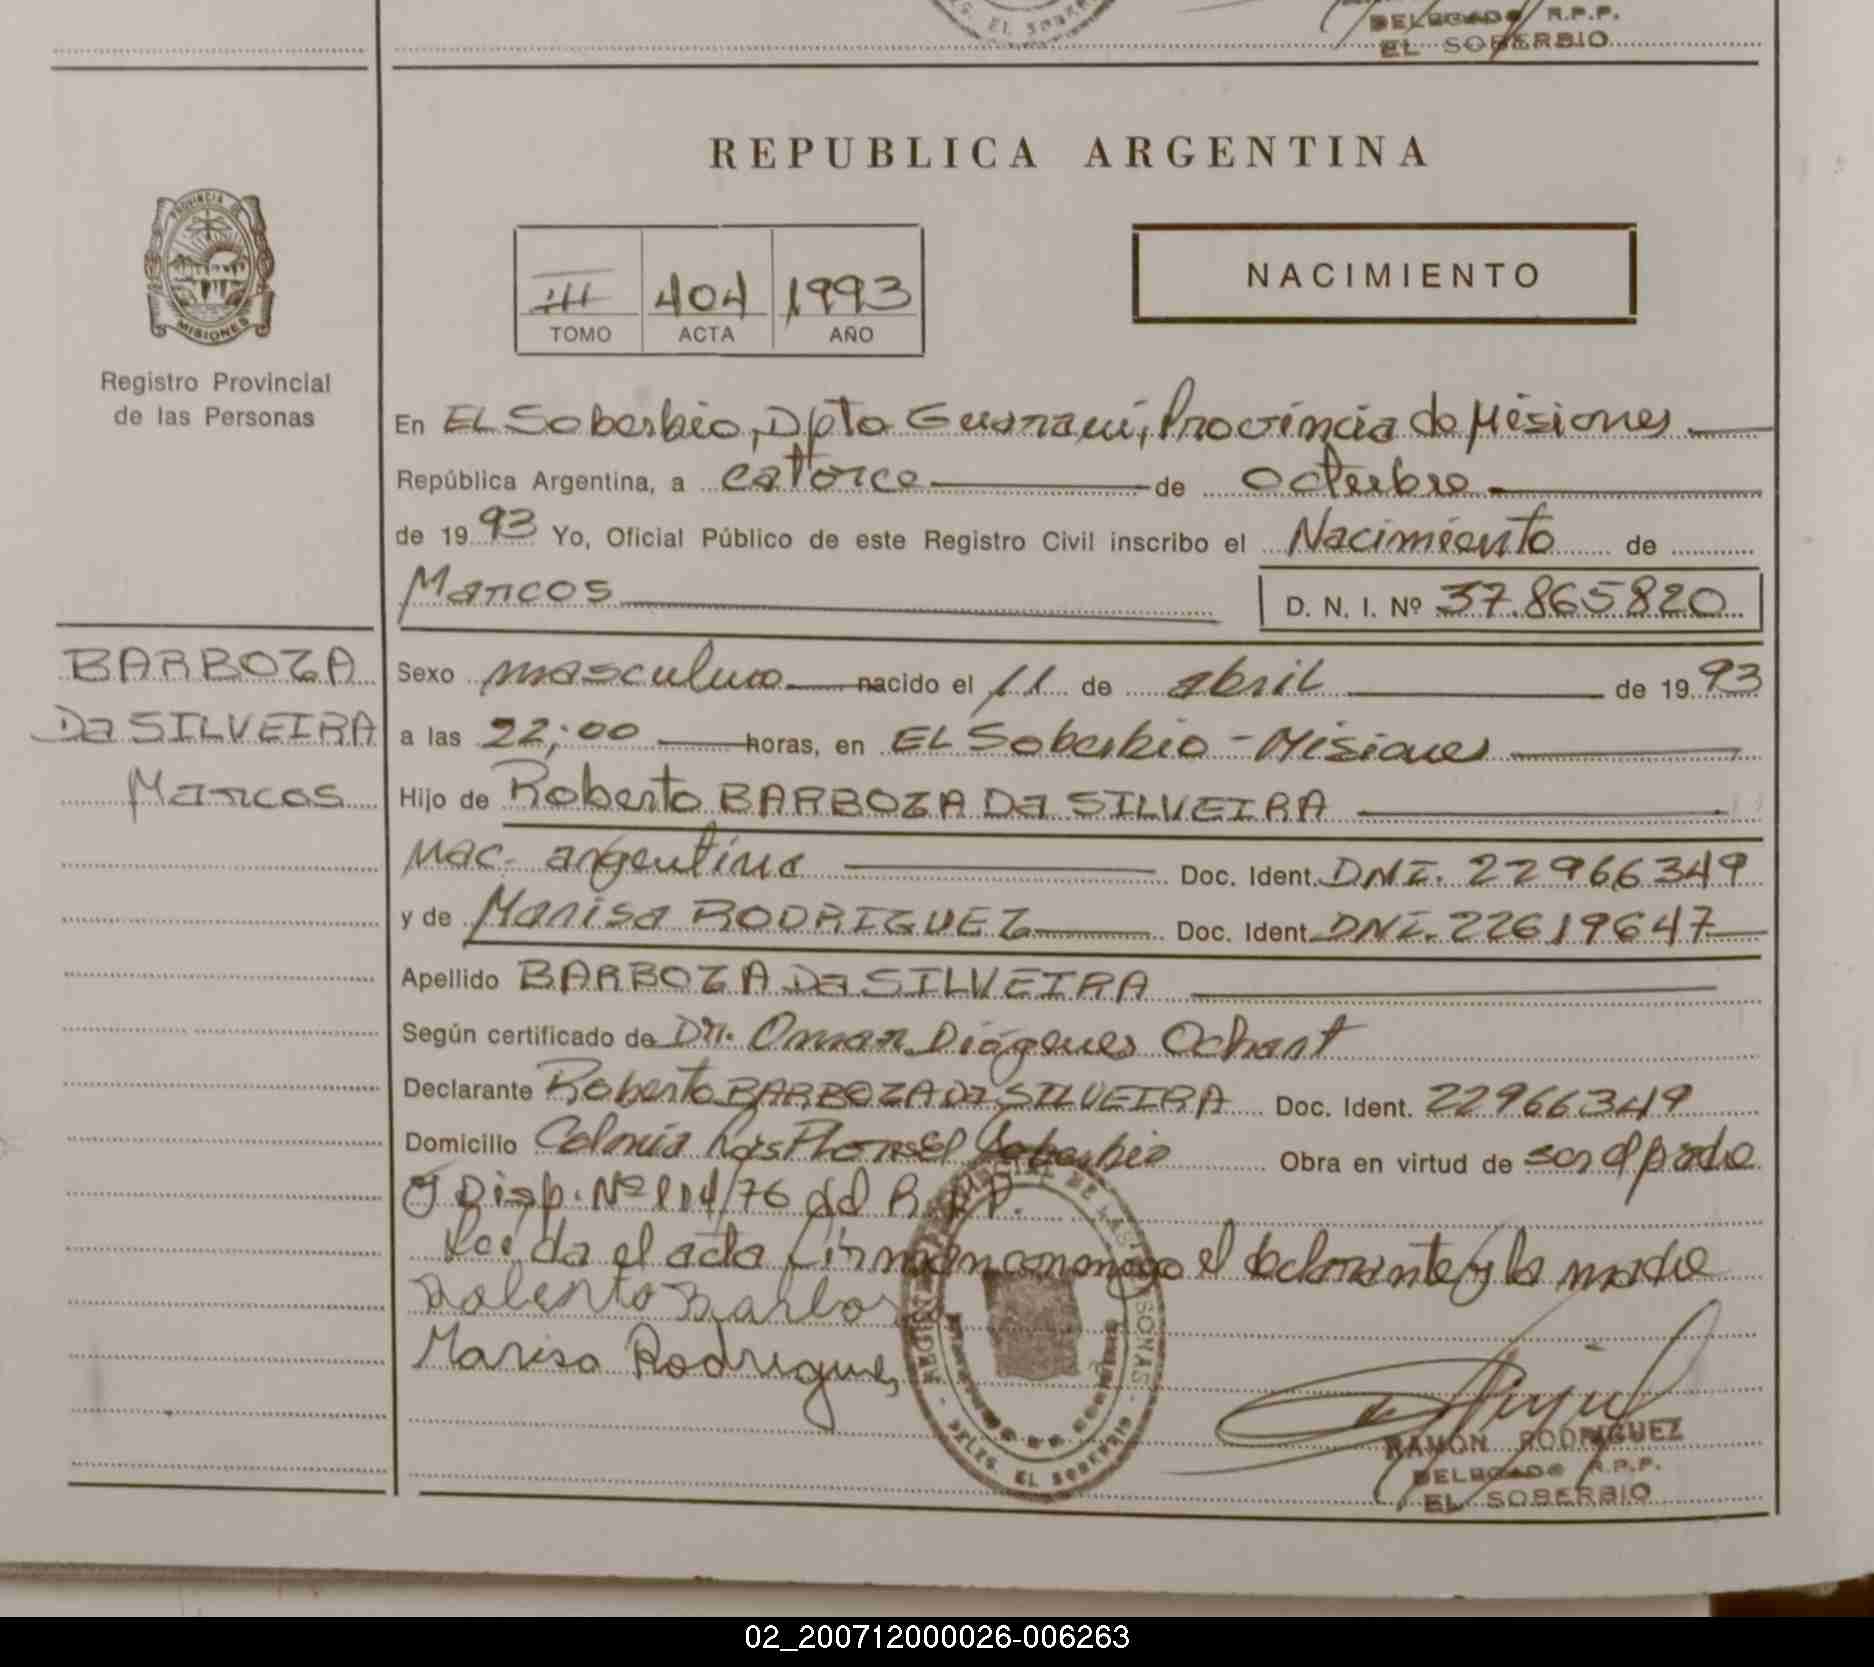 DELEGADO R.P.P.
EL SOBERBIO
REPUBLICA ARGENTINA
PROVINCIA DE
MISIONES
Registro Provincial
de las Personas
III 404 1993
TOMO ACTA AÑO
NACIMIENTO
En EL Soberbio, Dpto Guaraní, Provincia de Misiones
República Argentina, a catorce de octubre
de 1993 Yo, Oficial Público de este Registro Civil inscribo el Nacimiento de
Marcos
D. N. I. Nº 37.865820
BARBOZA
Da SILVEIRA
Marcos
Sexo masculino nacido el 11 de abril de 1993
a las 22:00 horas, en EL Soberbio - Misiones
Hijo de Roberto BARBOZA Da SILVEIRA
Nac. argentina Doc. Ident. DNI. 22966349
y de Marisa RODRIGUEZ Doc. Ident. DNI. 22619647
Apellido BARBOZA Da SILVEIRA
Según certificado de Dr. Omar Diógenes Ochart
Declarante Roberto BARBOZA Da SILVEIRA Doc. Ident. 22966349
Domicilio Colonia El Soberbio Obra en virtud de ser el padre
y Disp. Nº 114/76 del R.P.P.
Leída el acta firman conmigo el declarante y la madre
Roberto Barbos
Marisa Rodrigues
DELEG. EL SOBERBIO
RAMON RODRIGUEZ
DELEGADO R.P.P.
EL SOBERBIO
02_200712000026-006263